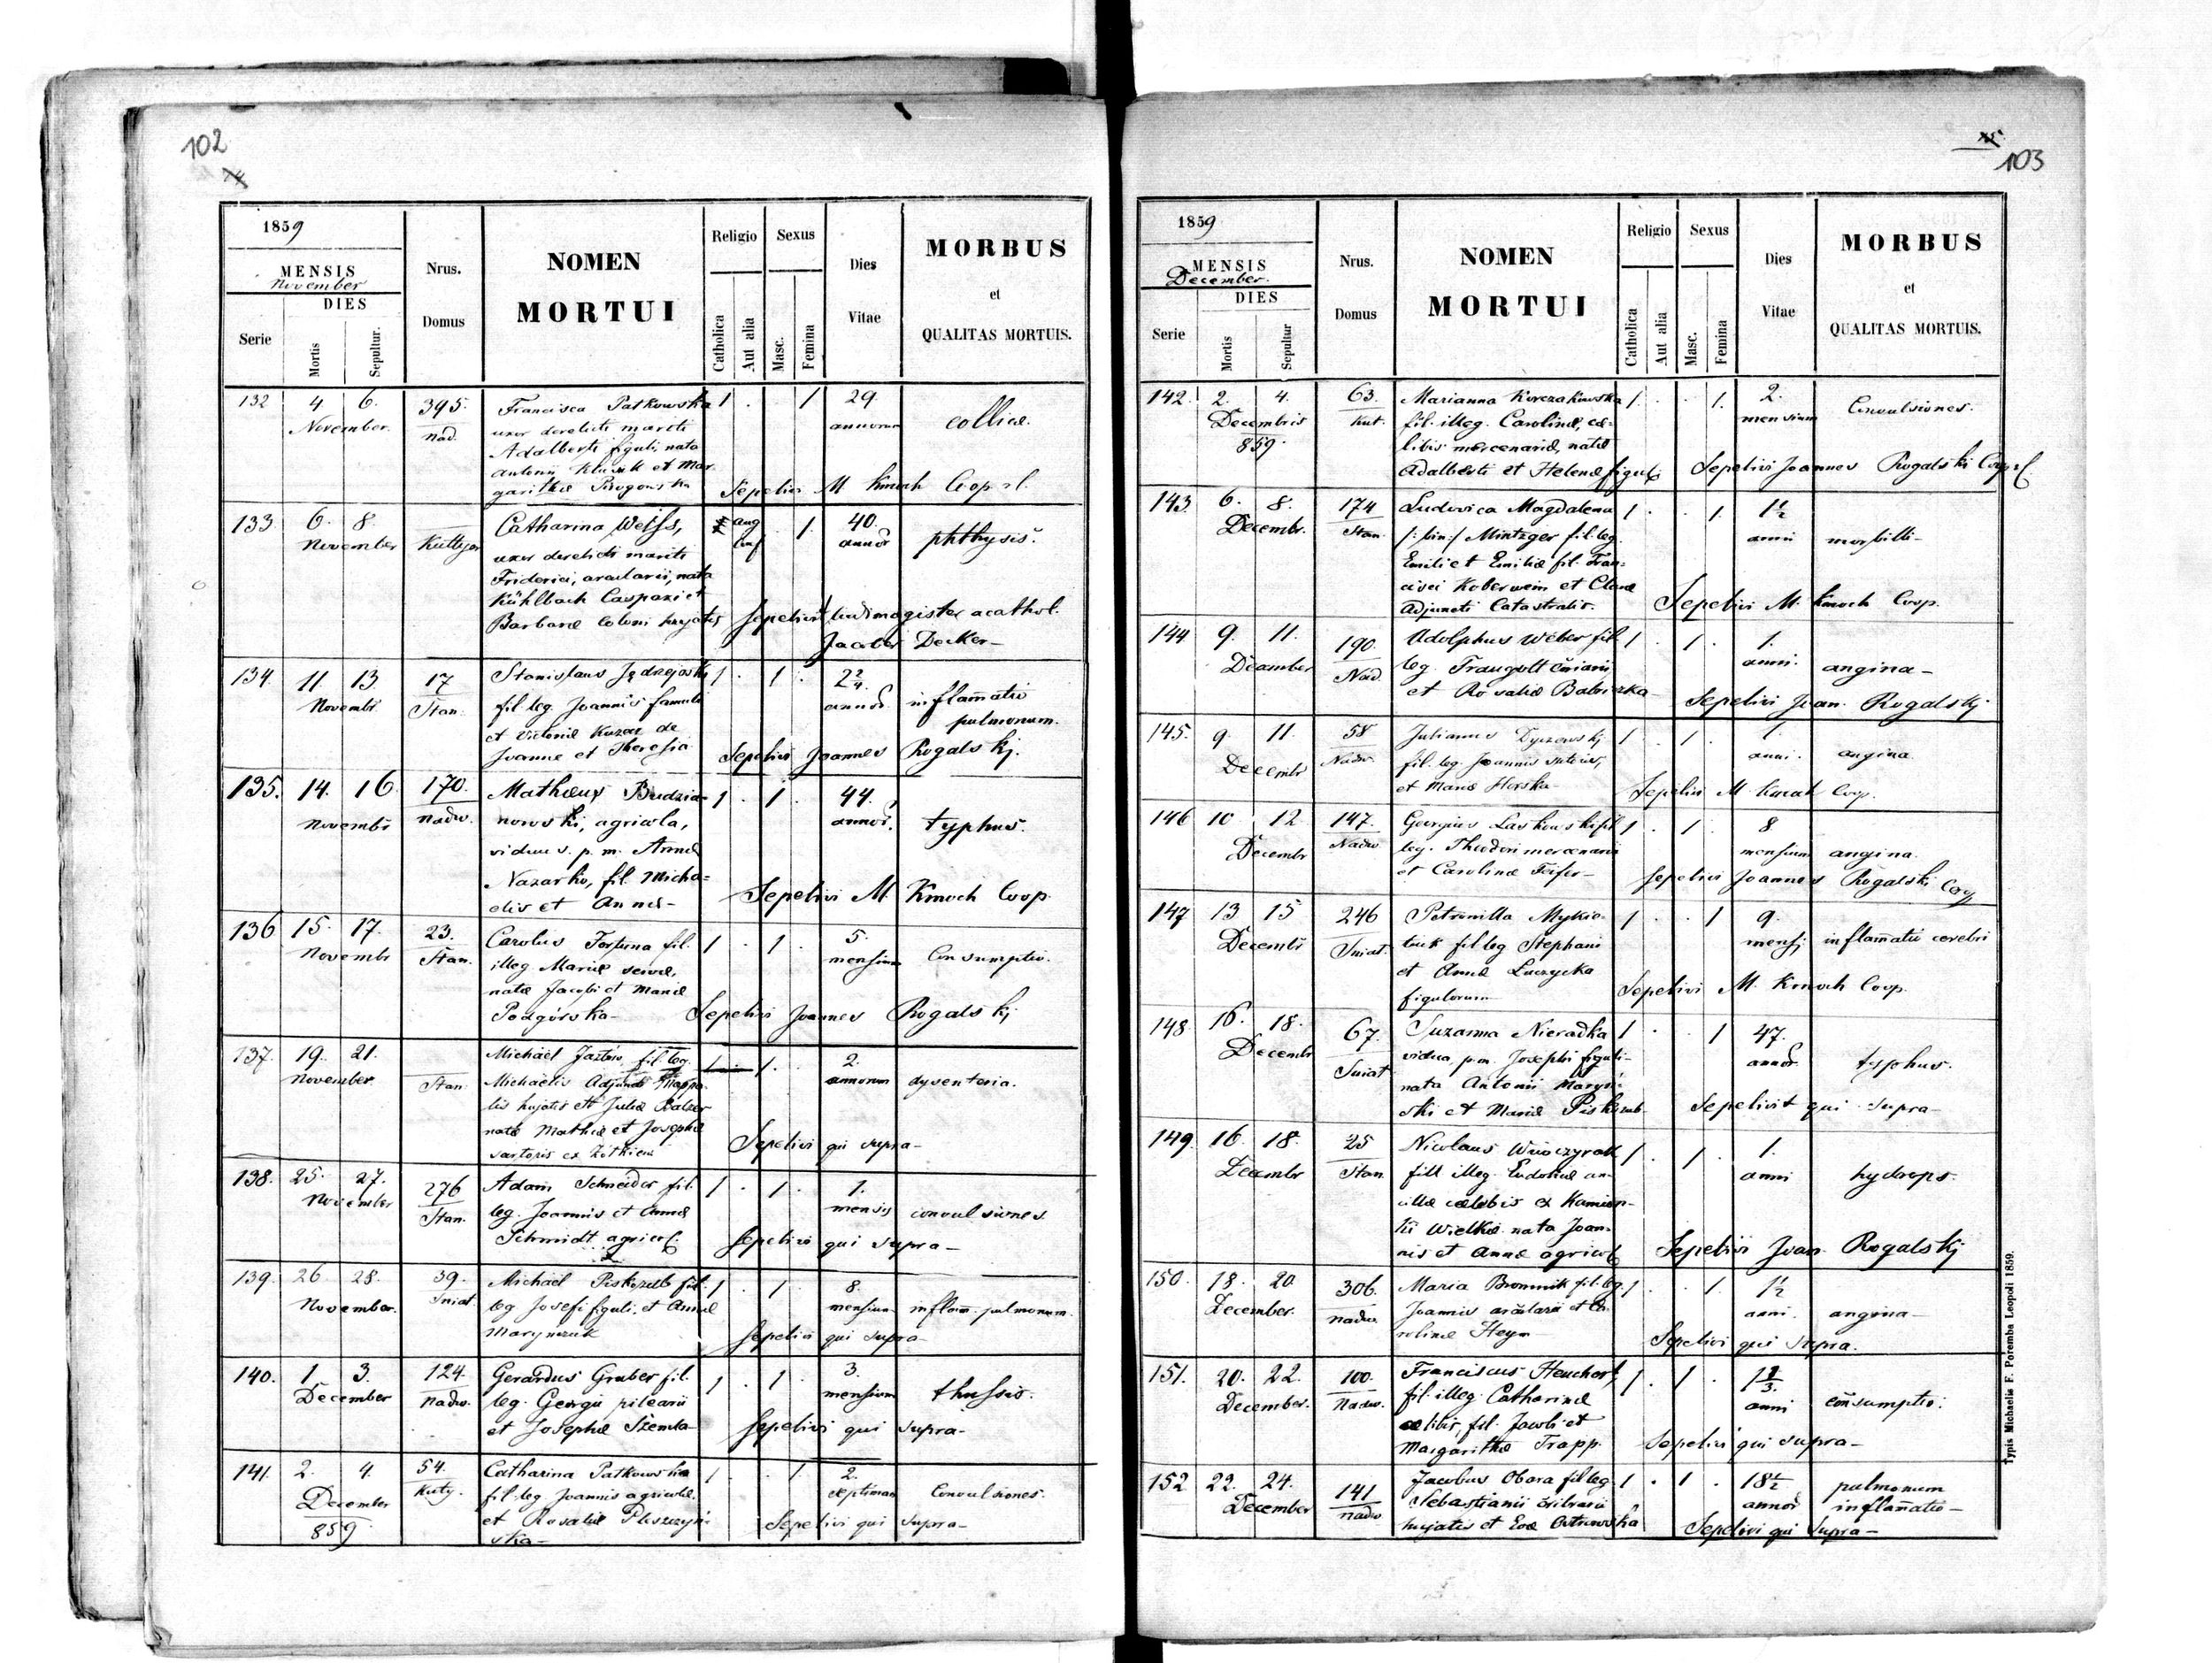 102
1859
MENSIS
November
DIES
Serie
Mortis
Sepultur.
Nrus.
Domus
NOMEN
MORTUI
Religio
Catholica
Aut alia
Sexus
Masc.
Femina
Dies
Vitae
MORBUS
et
QUALITAS MORTUIS.
132 4 6. 395. Francisca Patkowska 1 . 1 29.
November. nad. uxor derelicti mariti annorum collica.
Adalberti figuli, nata
Antonii Klusik et Mar-
garithæ Rogowska Sepelivi M Kmoch Coop.
133 6. 8. Catharina Weiss, aug 1. 40.
November Kuttyor uxor derelicti mariti annor phthysis.
Friderici, araularii, nata
Kühlbach Caspari et
Barbaræ coloni hujatis Sepelivit ludimagister acathol.
Jacobus Decker-
134. 11 13. 17 Stanislaus Jędrzejoski 1 . 1 . 2 2/4.
Novembr. Stan. fil. leg. Joannis famuli annor. inflam̄atio
et Victoriæ Kuzar de pulmonum.
Joanne et Theresia Sepelivi Joannes Rogalskj.
135. 14. 16. 170. Mathæus Budzia- 1 . 1 . 44.
Novembr nadw. nowski, agricola, annor. typhus.
viduus. p. m. Annæ
Nazarko, fil. Micha=
elis et Annæ- Sepelivi M. Kmoch Coop.
136 15. 17. 23. Carolus Fortuna fil. 1 . 1 . 5.
Novembr Stan. illeg. Mariæ servæ, mensium Consumptio.
natæ Jacobi et Mariæ
Podgórska- Sepelivi Joannes Rogalskj
137. 19. 21. Michael fil. leg. 1 1. 2.
November. Stan. Michaelis Adjuncti Mappa- annorum dysenteria.
lis hujatis et Juliæ Balzer
natæ Mathiæ et Josephæ
sartoris ex Żółkiew Sepelivi qui supra-
138. 25. 27. 276 Adam Schneider fil. 1 . 1 . 1.
November Stan. leg. Joannis et Annæ mensis convulsiones.
Schmidt agricol. Sepelivi qui supra-
139. 26 28. 39. Michael Piskozub fil. 1 . 1 . 8.
November. Sniat. leg Josefi figuli, et Annæ mensium inflam. pulmonum.
Marynczuk Sepelivi qui supra-
140. 1 3. 124. Gerardus Gruber fil. 1 . 1 . 3.
December nadw. leg. Georgii pilearii mensium thussis.
et Josephæ Szemla- Sepelivi qui supra-
141. 2. 4. 54. Catharina Patkowska 1 . . 1 2.
December Kuty. fil. leg Joannis agricolæ. septimas Convulsiones.
859 et Rosaliæ Pleszczyń-
ska- Sepelivi qui supra-
103
1859
MENSIS
December.
DIES
Serie
Mortis
Sepultur
Nrus.
Domus
NOMEN
MORTUI
Religio
Catholica
Aut alia
Sexus
Masc.
Femina
Dies
Vitae
MORBUS
et
QUALITAS MORTUIS.
142. 2. 4. 63. Marianna Korczakowska 1 . . 1. 2.
Decembris Kut. fil. illeg. Carolinæ, cæ- mensium Convulsiones.
859. libis mercenariæ, natæ
Adalberti et Helenæ figuli Sepelivi Joannes Rogalski Coop
143. 6. 8. 174 Ludovica Magdalena 1 . . 1. 1½
Decembr. Stan. /: bin:/ Mintzger fil. leg. anni morbilli-
Emili et Emiliæ fil. Fran-
cisci Koberwein et Claræ
Adjuncti Catastralis. Sepelivi M. Kmoch Coop.
144 9. 11. 190. Adolphus Weber fil. 1 . 1 . 1.
December Nad. leg. Traugott anni. angina-
et Rosaliæ Sepelivi Joan. Rogalskj.
145. 9. 11. 58 Julianus Dyczowskj 1 . 1 . 1.
Decembr Nadw. fil. leg. Joannis sutoris, anni. angina.
et Mariæ Horska- Sepelivi M Kmoch Coop.
146 10 12 147. Georgius Laskowski fil 1 . 1 . 8
Decembr Nadw leg. Theodori mercenarii mensium angina.
et Carolinæ Feifer- Sepelivi Joannes Rogalski Coop
147 13 15 246 Petronilla Mykie- 1 . . 1 9.
Decembr Sniat. tiuk fil leg Stephani mensj inflam̄atio cerebri
et Annæ Luczycka
figulorum Sepelivi M. Kmoch Coop.
148 16. 18. 67. Suzanna Nieradka 1 . 1 47.
Decembr Sniat vidua p.m. Josephi figuli- annor typhus.
nata Antonii
ski et Mariæ Piskozub- Sepelivit qui supra-
149. 16. 18. 25 Nicolaus 1 . 1 . 1.
Decembr Stan. fill illeg. Eudokiæ an- anni hydrops.
cillæ cælibis ex Kamion-
ki Wielkie nata Joan-
nis et Annæ agricol Sepelivi Joan. Rogalskj
150. 18. 20. 306. Maria Bronnik fil. leg. 1 . . 1. 1½
December. nadw. Joannis et Ca- anni. angina-
rolinæ Heym- Sepelivi qui supra.
151. 20. 22. 100. Franciscus Heuchert, 1. 1 . 1 2/3.
December. Nadw. fil. illeg. Catharinæ anni cōnsumptio.
cælibis, fil. Jacobi et
Margarithæ Trapp. Sepelivi qui supra-
152 22. 24. 141 Jacobus Obara fil leg. 1 . 1 . 18½ pulmonum
December nadw Sebastianii annor inflam̄atio-
hujatis et Evæ Ostrowska Sepelivi qui supra-
Typis Michaelis F. Poremba Leopoli 1859.